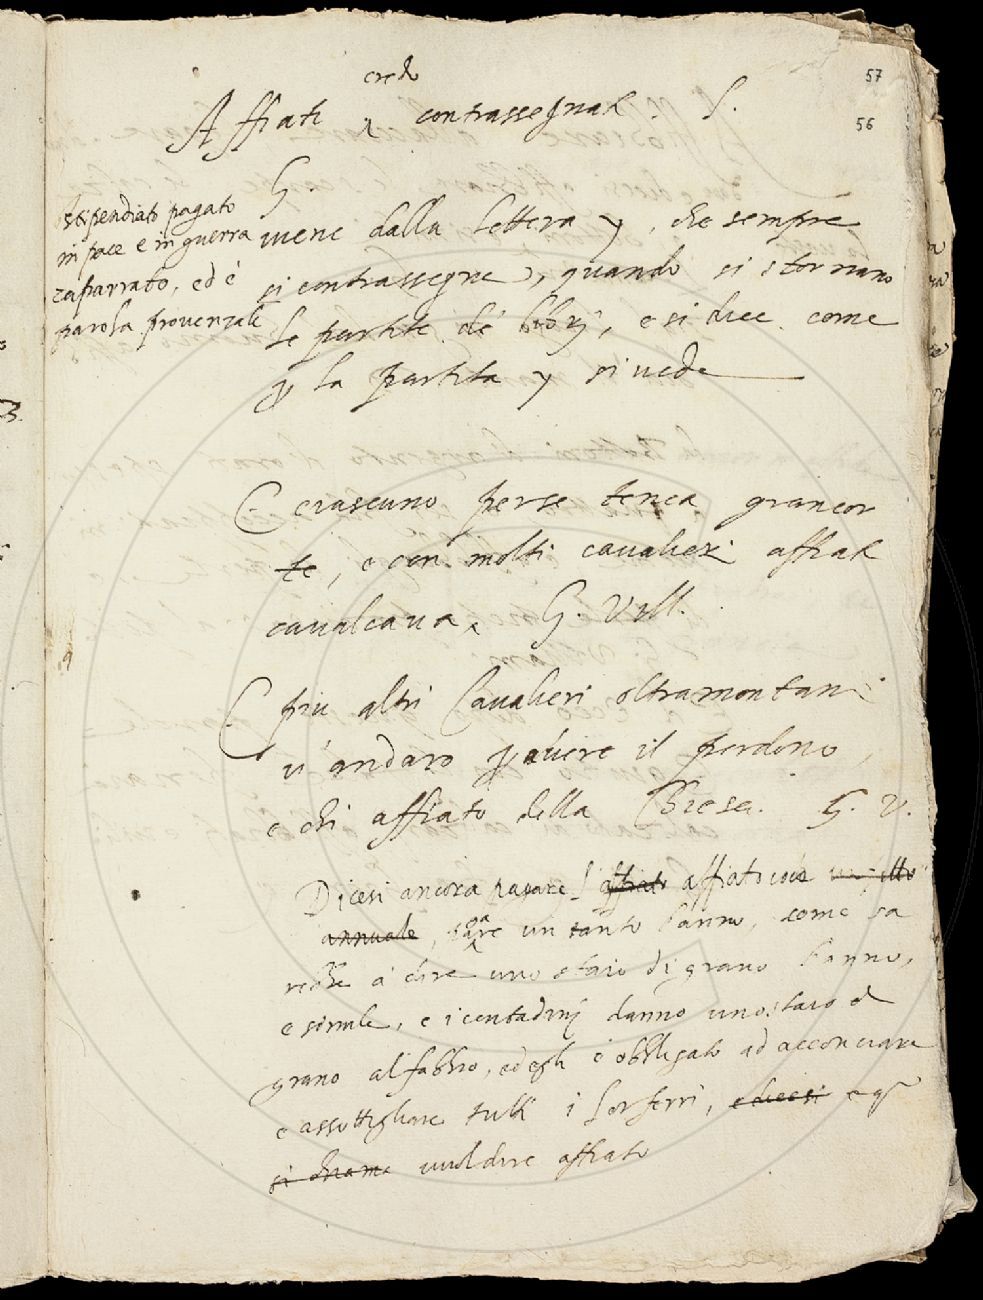 57
56
credo
Affiati contrassegnati. S.
G
stipendiato pagato
in pace e in guerra
caparrato, ed è
parola provenzale
viene dalla lettera y, che sempre
si contrassegna, quando si stornano
le partite de' libri, e si dice come
p la partita y si vede
C ciascuno per se tenea gran cor
te, e con molti cavalieri affiati
cavalcava. G. Vill.
E piu altri Cavalieri oltramontani
v'andaro p avere il perdono,
e chi affiato della Chiesa. G. V.
Dicesi ancora pagare l' affiato affiato cioè
annuale, dare un tanto l'anno, come sa
rebbe à dire uno staio di grano l'anno,
e simile, e i contadini danno uno staio di
grano al fabbro, ed egli è obbligato ad acconciare
e assottigliare tutti i lor ferri, e dicesi e qsto
si chiama vuol dire affiato